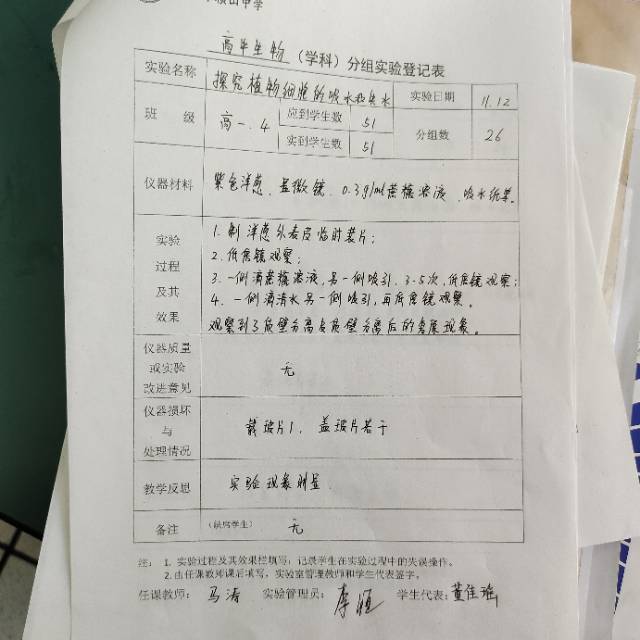 山中学
高中生物（学科）分组实验登记表
实验名称 探究植物细胞的吸水和失水 实验日期 11.12
班级 高一.4 应到学生数 51 分组数 26
实到学生数 51
仪器材料 紫色洋葱、显微镜、0.3g/ml蔗糖溶液、吸水纸等。
实验过程及其效果
1. 制洋葱外表皮临时装片；
2. 低倍镜观察；
3. 一侧滴蔗糖溶液，另一侧吸引，3-5次，低倍镜观察；
4. 一侧滴清水另一侧吸引，再低倍镜观察。
观察到了质壁分离及质壁分离后的复原现象。
仪器质量或实验改进意见 无
仪器损坏与处理情况 载玻片1、盖玻片若干
教学反思 实验现象明显
备注 （缺席学生） 无
注：1. 实验过程及其效果栏填写：记录学生在实验过程中的失误操作。
2.由任课教师课后填写，实验室管理教师和学生代表签字。
任课教师：马涛 实验管理员：李恒 学生代表：董佳瑶